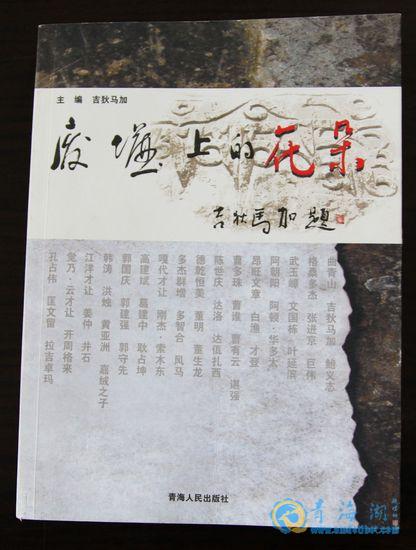 主 编 吉狄马加
废墟上的花朵
吉狄馬加题
曲青山 吉狄马加 鲍义志
格桑多杰 张进京 巨伟
武玉嶂 文国栋 叶延滨
阿朝阳 阿顿·华多太
昂旺文章 白渔 才登
曹多珠 曹谁 曹有云 谌强
陈世庆 达洛 扎西
德乾恒美 董明 董生龙
多杰群增 多智合 风马
嘎代才让 刚杰·索木东
高建斌 葛建中 耿占坤
郭国庆 郭建强 郭守先
韩涛 洪烛 黄亚洲 嘉绒之子
江洋才让 姜仲 井石
觉乃·云才让 开周格来
孔占伟 匡文留 拉吉卓玛
青海人民出版社
青海湖